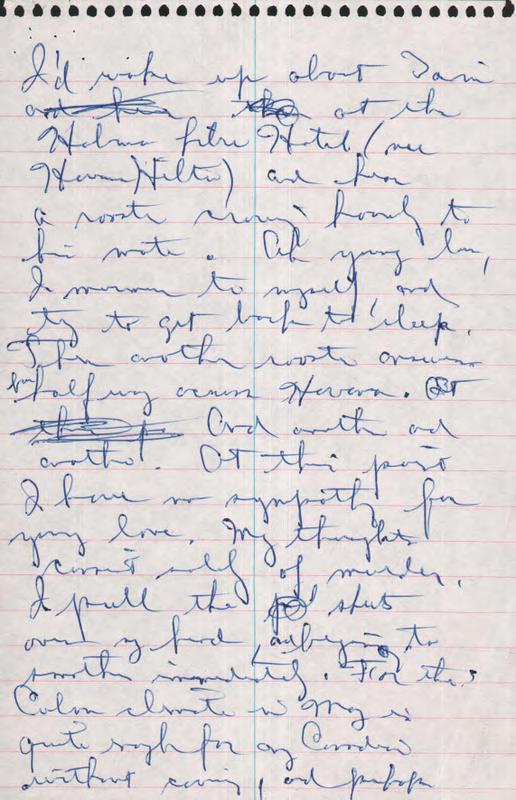 I'd wake up about 7am
at the
Habana Libre Hotel (nee
Havana Hilton) and hear
a rooster crowing hoarsely to
his mate. Ah young love,
I murmur to myself and
try to get back to sleep.
Then another rooster answers
from half way across Havana.
And another and
another. At this point
I have no sympathy for
young love. My thoughts
consist solely of murder.
I pull the sheets
over my head and begin to
smother immediately. For the
Cuban climate in May is
quite rough for any Canadian
without caring, and perhaps